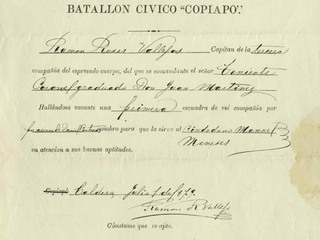 BATALLON CIVICO "COPIAPÓ".
Ramon Rosas Vallejos Capitan de la tercera
compañía del espresado cuerpo, del que es comandante el señor Teniente
Coronel graduado Don Juan Martinez
Hallándose vacante una primera escuadra de mi compañía por
nombro para que la sirva al Ciudadano Manuel
Meneses
en atencion a sus buenas aptitudes.
Copiapó Caldera Julio 1 de 1879.
Ramon R. Vallejos
Cónstame que es apto.